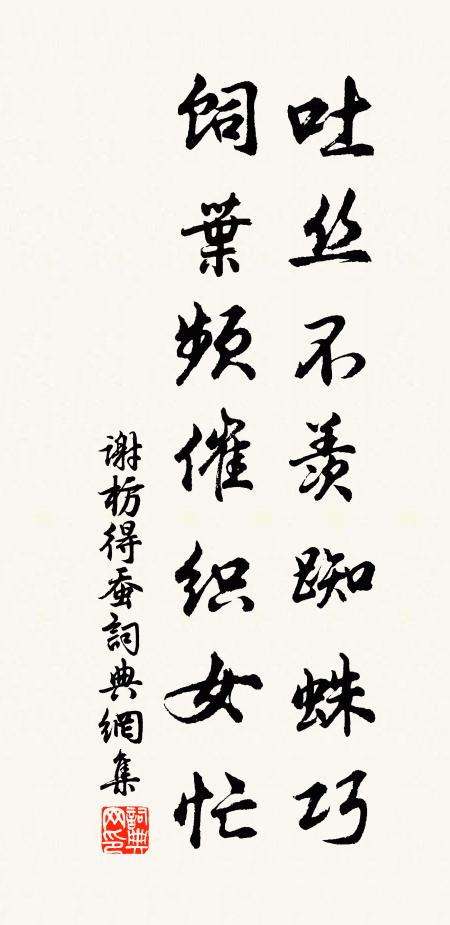 吐丝不羡蜘蛛巧
饲葉频催织女忙
谢枋得蚕詞典網集
詞典
网印